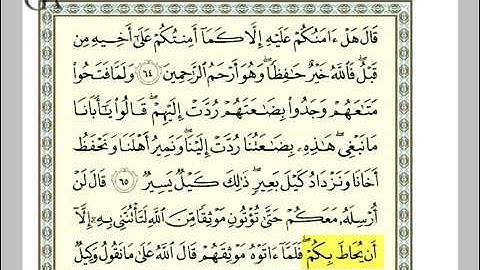 قَالَ هَلْ ءَامَنُكُمْ عَلَيْهِ إِلَّا كَمَآ أَمِنتُكُمْ عَلَىٰٓ أَخِيهِ مِن
قَبْلُ ۖ فَٱللَّهُ خَيْرٌ حَـٰفِظًا ۖ وَهُوَ أَرْحَمُ ٱلرَّٰحِمِينَ ٦٤ وَلَمَّا فَتَحُوا۟
مَتَـٰعَهُمْ وَجَدُوا۟ بِضَـٰعَتَهُمْ رُدَّتْ إِلَيْهِمْ ۖ قَالُوا۟ يَـٰٓأَبَانَا
مَا نَبْغِى ۖ هَـٰذِهِۦ بِضَـٰعَتُنَا رُدَّتْ إِلَيْنَا ۖ وَنَمِيرُ أَهْلَنَا وَنَحْفَظُ
أَخَانَا وَنَزْدَادُ كَيْلَ بَعِيرٍ ۖ ذَٰلِكَ كَيْلٌ يَسِيرٌ ٦٥ قَالَ لَنْ
أُرْسِلَهُۥ مَعَكُمْ حَتَّىٰ تُؤْتُونِ مَوْثِقًا مِّنَ ٱللَّهِ لَتَأْتُنَّنِى بِهِۦٓ إِلَّآ
أَن يُحَاطَ بِكُمْ ۖ فَلَمَّآ ءَاتَوْهُ مَوْثِقَهُمْ قَالَ ٱللَّهُ عَلَىٰ مَا نَقُولُ وَكِيلٌ